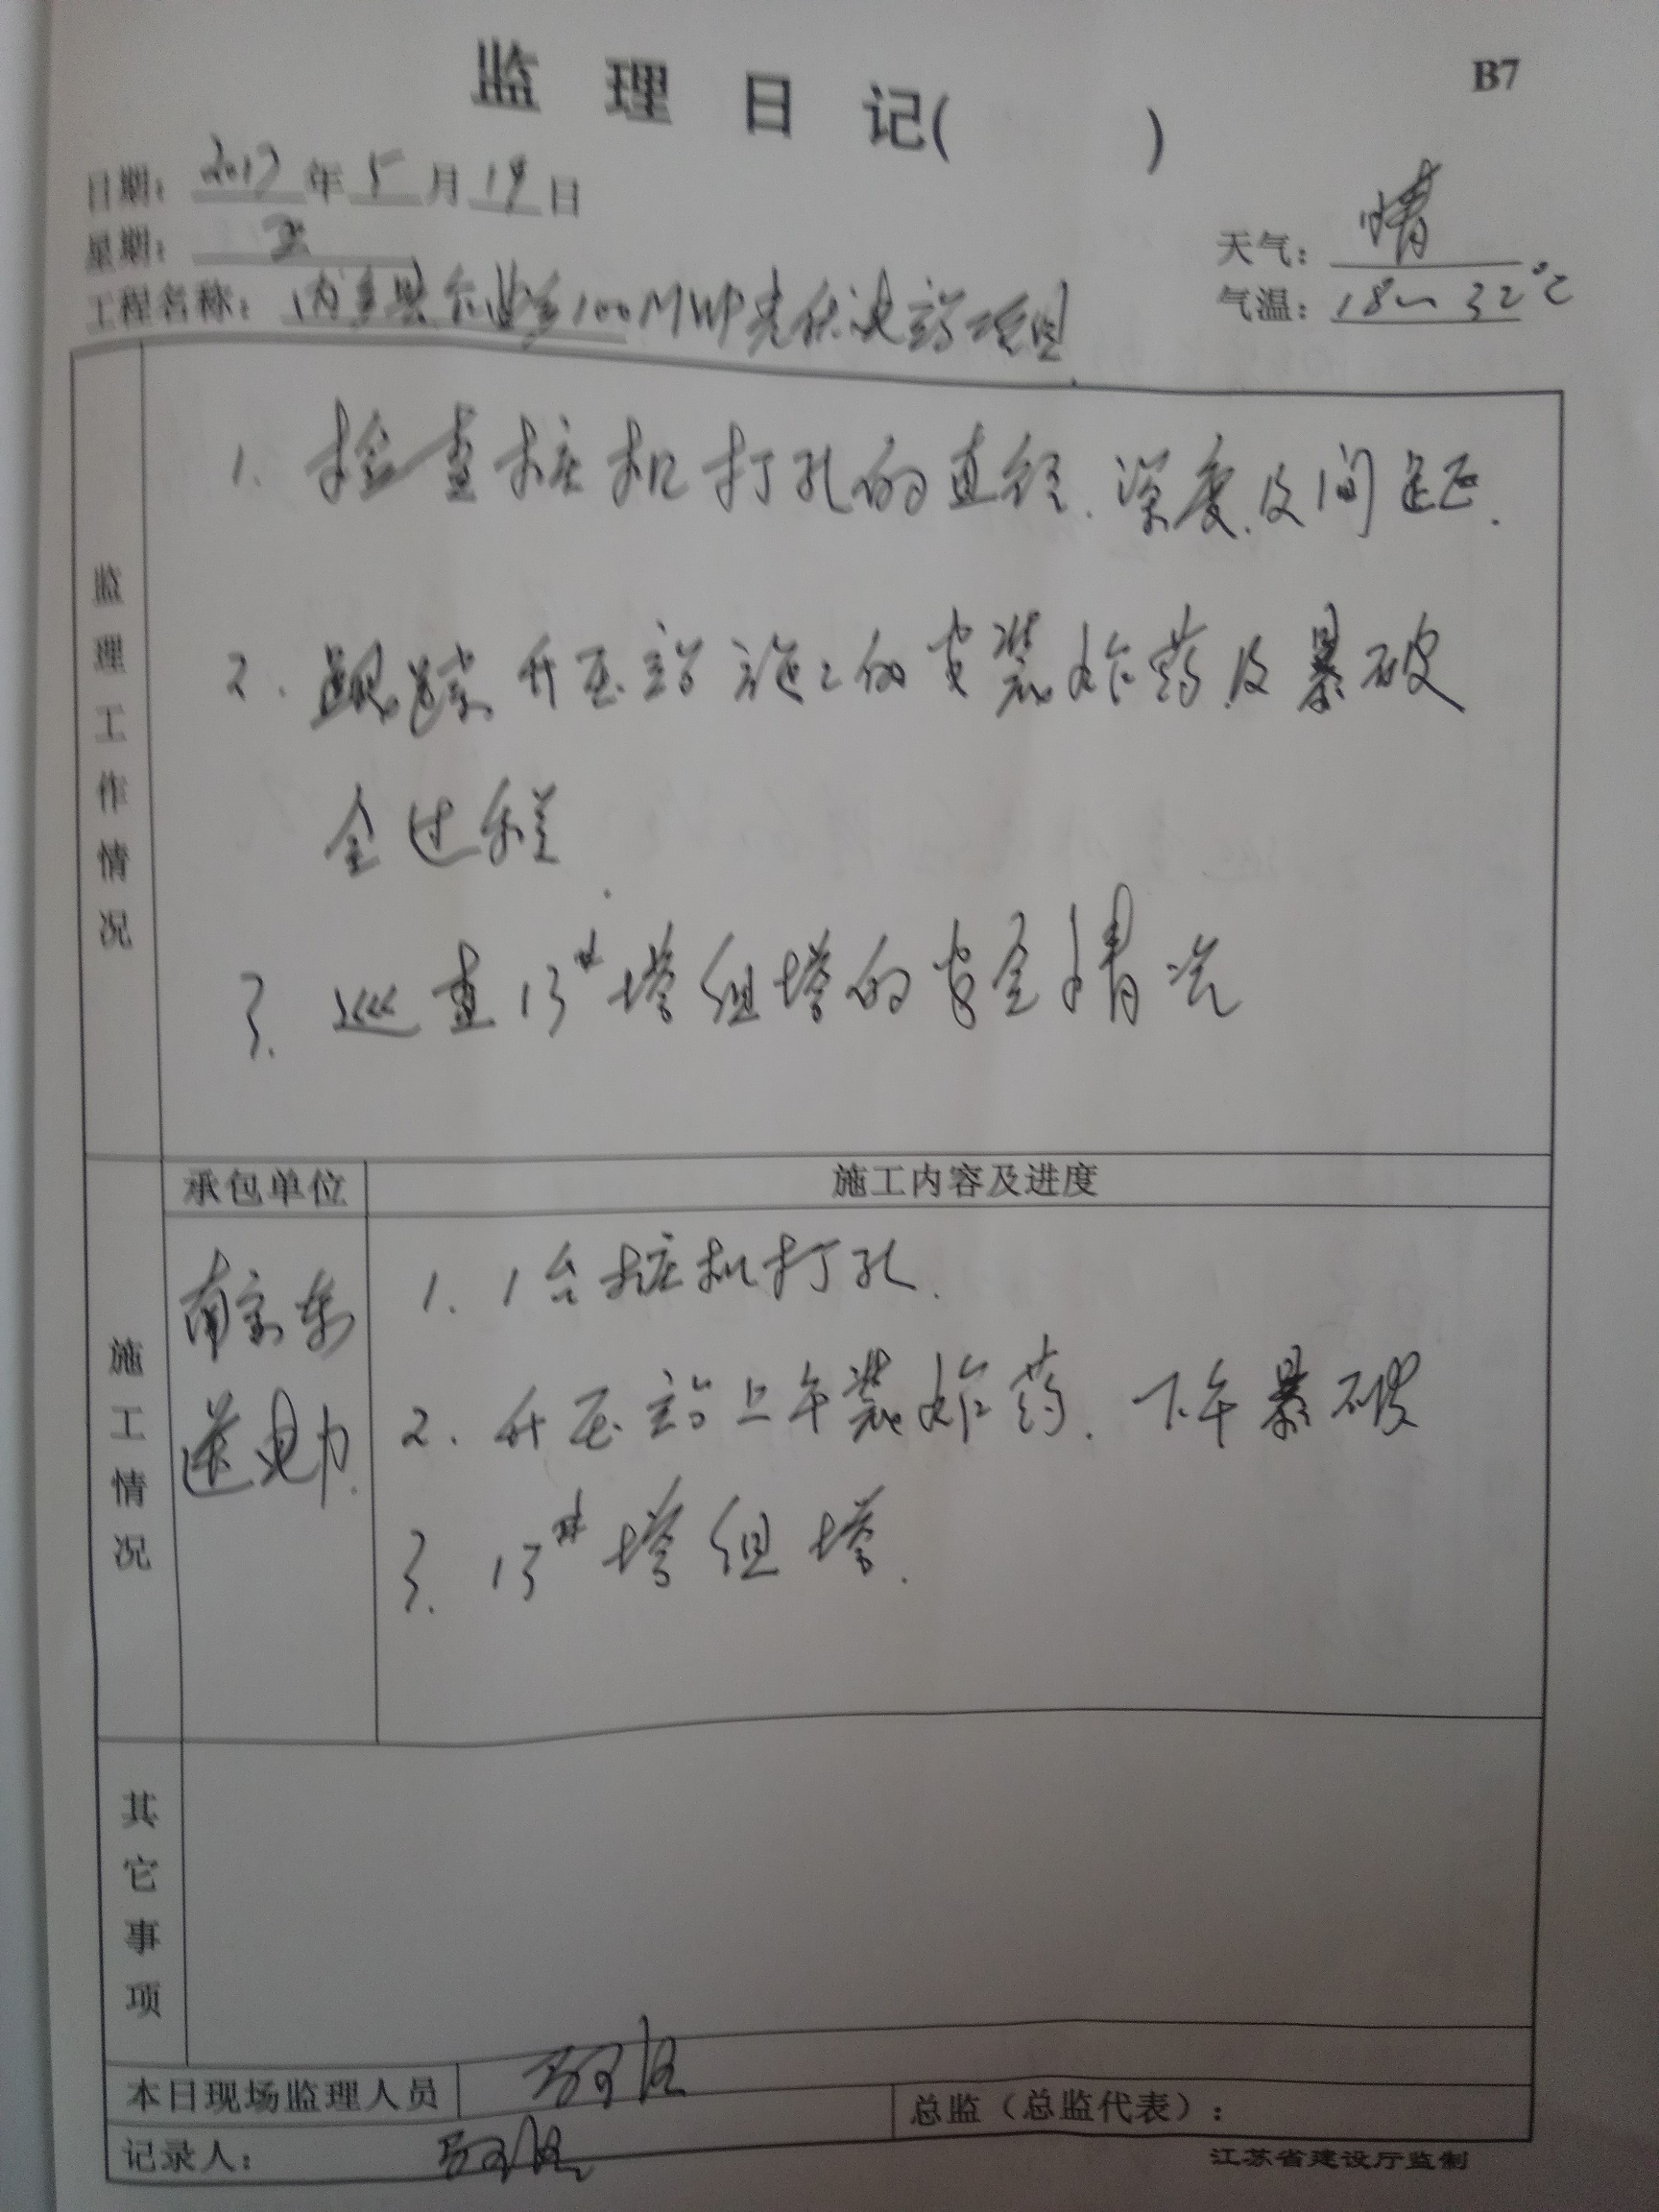 B7
监理日记( )
日期：2017年5月19日
星期：五
天气：晴
工程名称：内乡县乍曲乡100MWP光伏发电站项目
气温：18~32℃
监理工作情况
1. 检查桩机打孔的直径、深度及间距.
2. 跟踪升压站施工的安装炸药及暴破
全过程.
3. 巡查13#塔组塔的安全情况
承包单位 施工内容及进度
施工情况
南京东
送电力.
1. 1台桩机打孔.
2. 升压站上午装炸药. 下午暴破
3. 13#塔组塔.
其它事项
本日现场监理人员
总监（总监代表）：
记录人：
江苏省建设厅监制